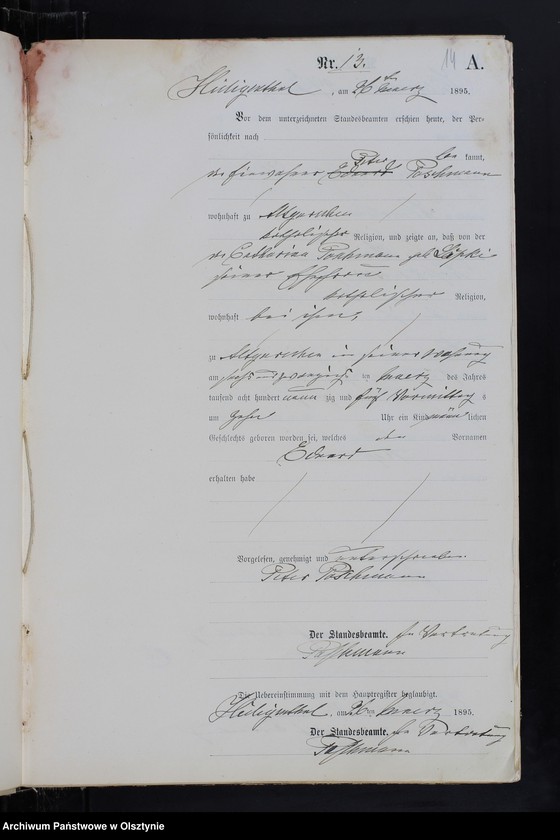 Nr. 13. 14 A.
Heiligenthal, am 26ten Maerz 1895.
Vor dem unterzeichneten Standesbeamten erschien heute, der Per-
sönlichkeit nach
be kannt,
Peter
der Einwohner Eduard Poschmann
wohnhaft zu Altgarschen
katholischer Religion, und zeigte an, daß von der
Catharina Poschmann geb. Lipki
seiner Ehefrau
katholischer Religion,
wohnhaft bei ihm,
zu Altgarschen in seiner Wohnung
am sechsundzwanzigst en Maerz des Jahres
tausend acht hundert neun zig und fünf Vormittag s
um Uhr ein Kind männ lichen
Geschlechts geboren worden sei, welches den Vornamen
Eduard
erhalten habe
Vorgelesen, genehmigt und unterschrieben
Peter Poschmann
Der Standesbeamte. In Vertretung
Poschmann
Die Uebereinstimmung mit dem Hauptregister beglaubigt.
Heiligenthal, am 26ten Maerz 1895.
Der Standesbeamte. In Vertretung
Poschmann
Archiwum Państwowe w Olsztynie